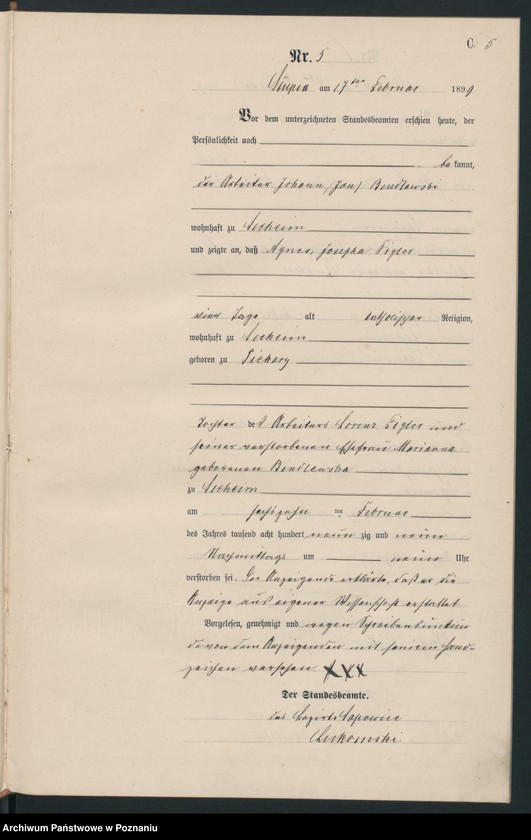 C. 5
Nr. 5
am 17ten Februar 1899
Vor dem unterzeichneten Standesbeamten erschien heute, der
Persönlichkeit nach
bekannt,
der Arbeiter Johann (Jan) Bendlewski
wohnhaft zu Seeheim
und zeigte an, daß Agnes, Josepha Figler
vier Tage alt katholischer Religion,
wohnhaft zu Seeheim
geboren zu Piekary
Tochter des Arbeiters Lorenz Figler und
seiner verstorbenen Ehefrau Marianna
geborenen Bendlewska
zu Seeheim
am sechszehn ten Februar
des Jahres tausend acht hundert neun zig und neun
Nachmittags um neun Uhr
verstorben sei. Der Anzeigende erklärte, daß er die
Anzeige aus eigener Wissenschaft erstattet
Vorgelesen, genehmigt und wegen Schreibensunkunde
von dem Anzeigenden mit seinem Hand-
zeichen versehen. XXX
Der Standesbeamte.